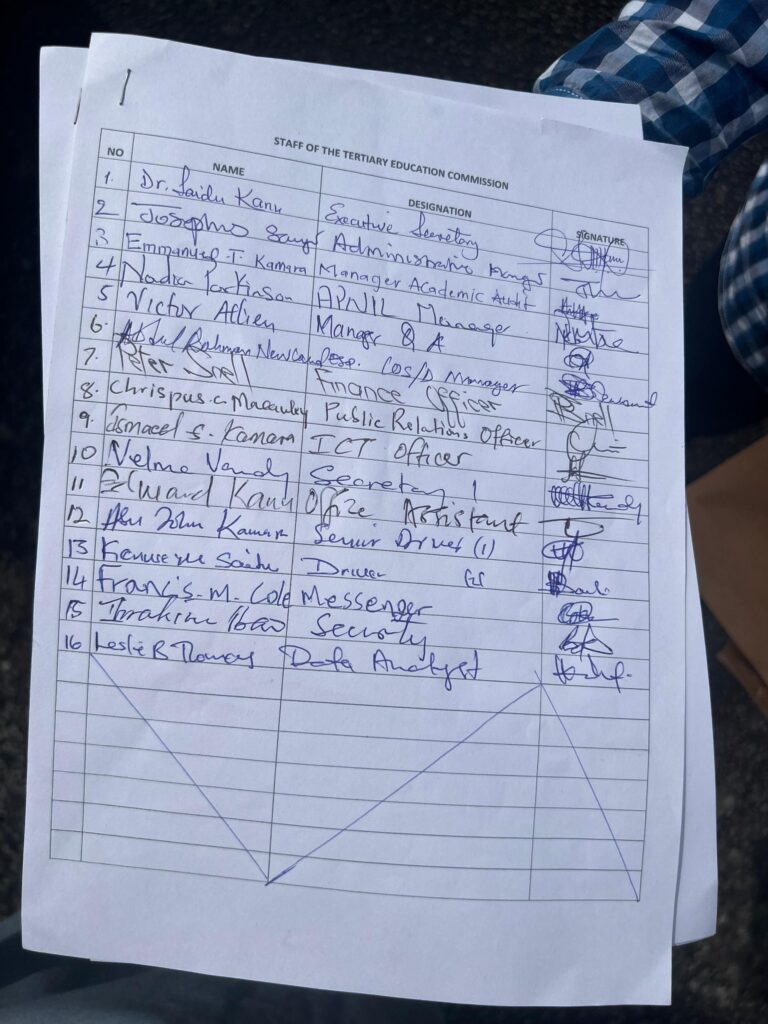 STAFF OF THE TERTIARY EDUCATION COMMISSION
NO NAME DESIGNATION SIGNATURE
1. Dr. Saidu Kanu Executive Secretary
2 Josephus Administrative
3 Emmanuel T. Kamara Manager Academic Audit
4 Nadia Parkinson Manager
5 Victor Manger & A
6. Abdul Rahman Manager
7. Peter Snell Finance Officer
8. Chrispus. C. Macauley Public Relations Officer
9. Ismael S. Kamara ICT Officer
10 Velma Vandy Secretary 1
11 Edward Kanu Office Assistant
12 Abu John Kamara Senior Driver (1)
13 Driver
14 Francis. M. Cole Messenger
15 Ibrahim Security
16 Leslie B. Data Analyst